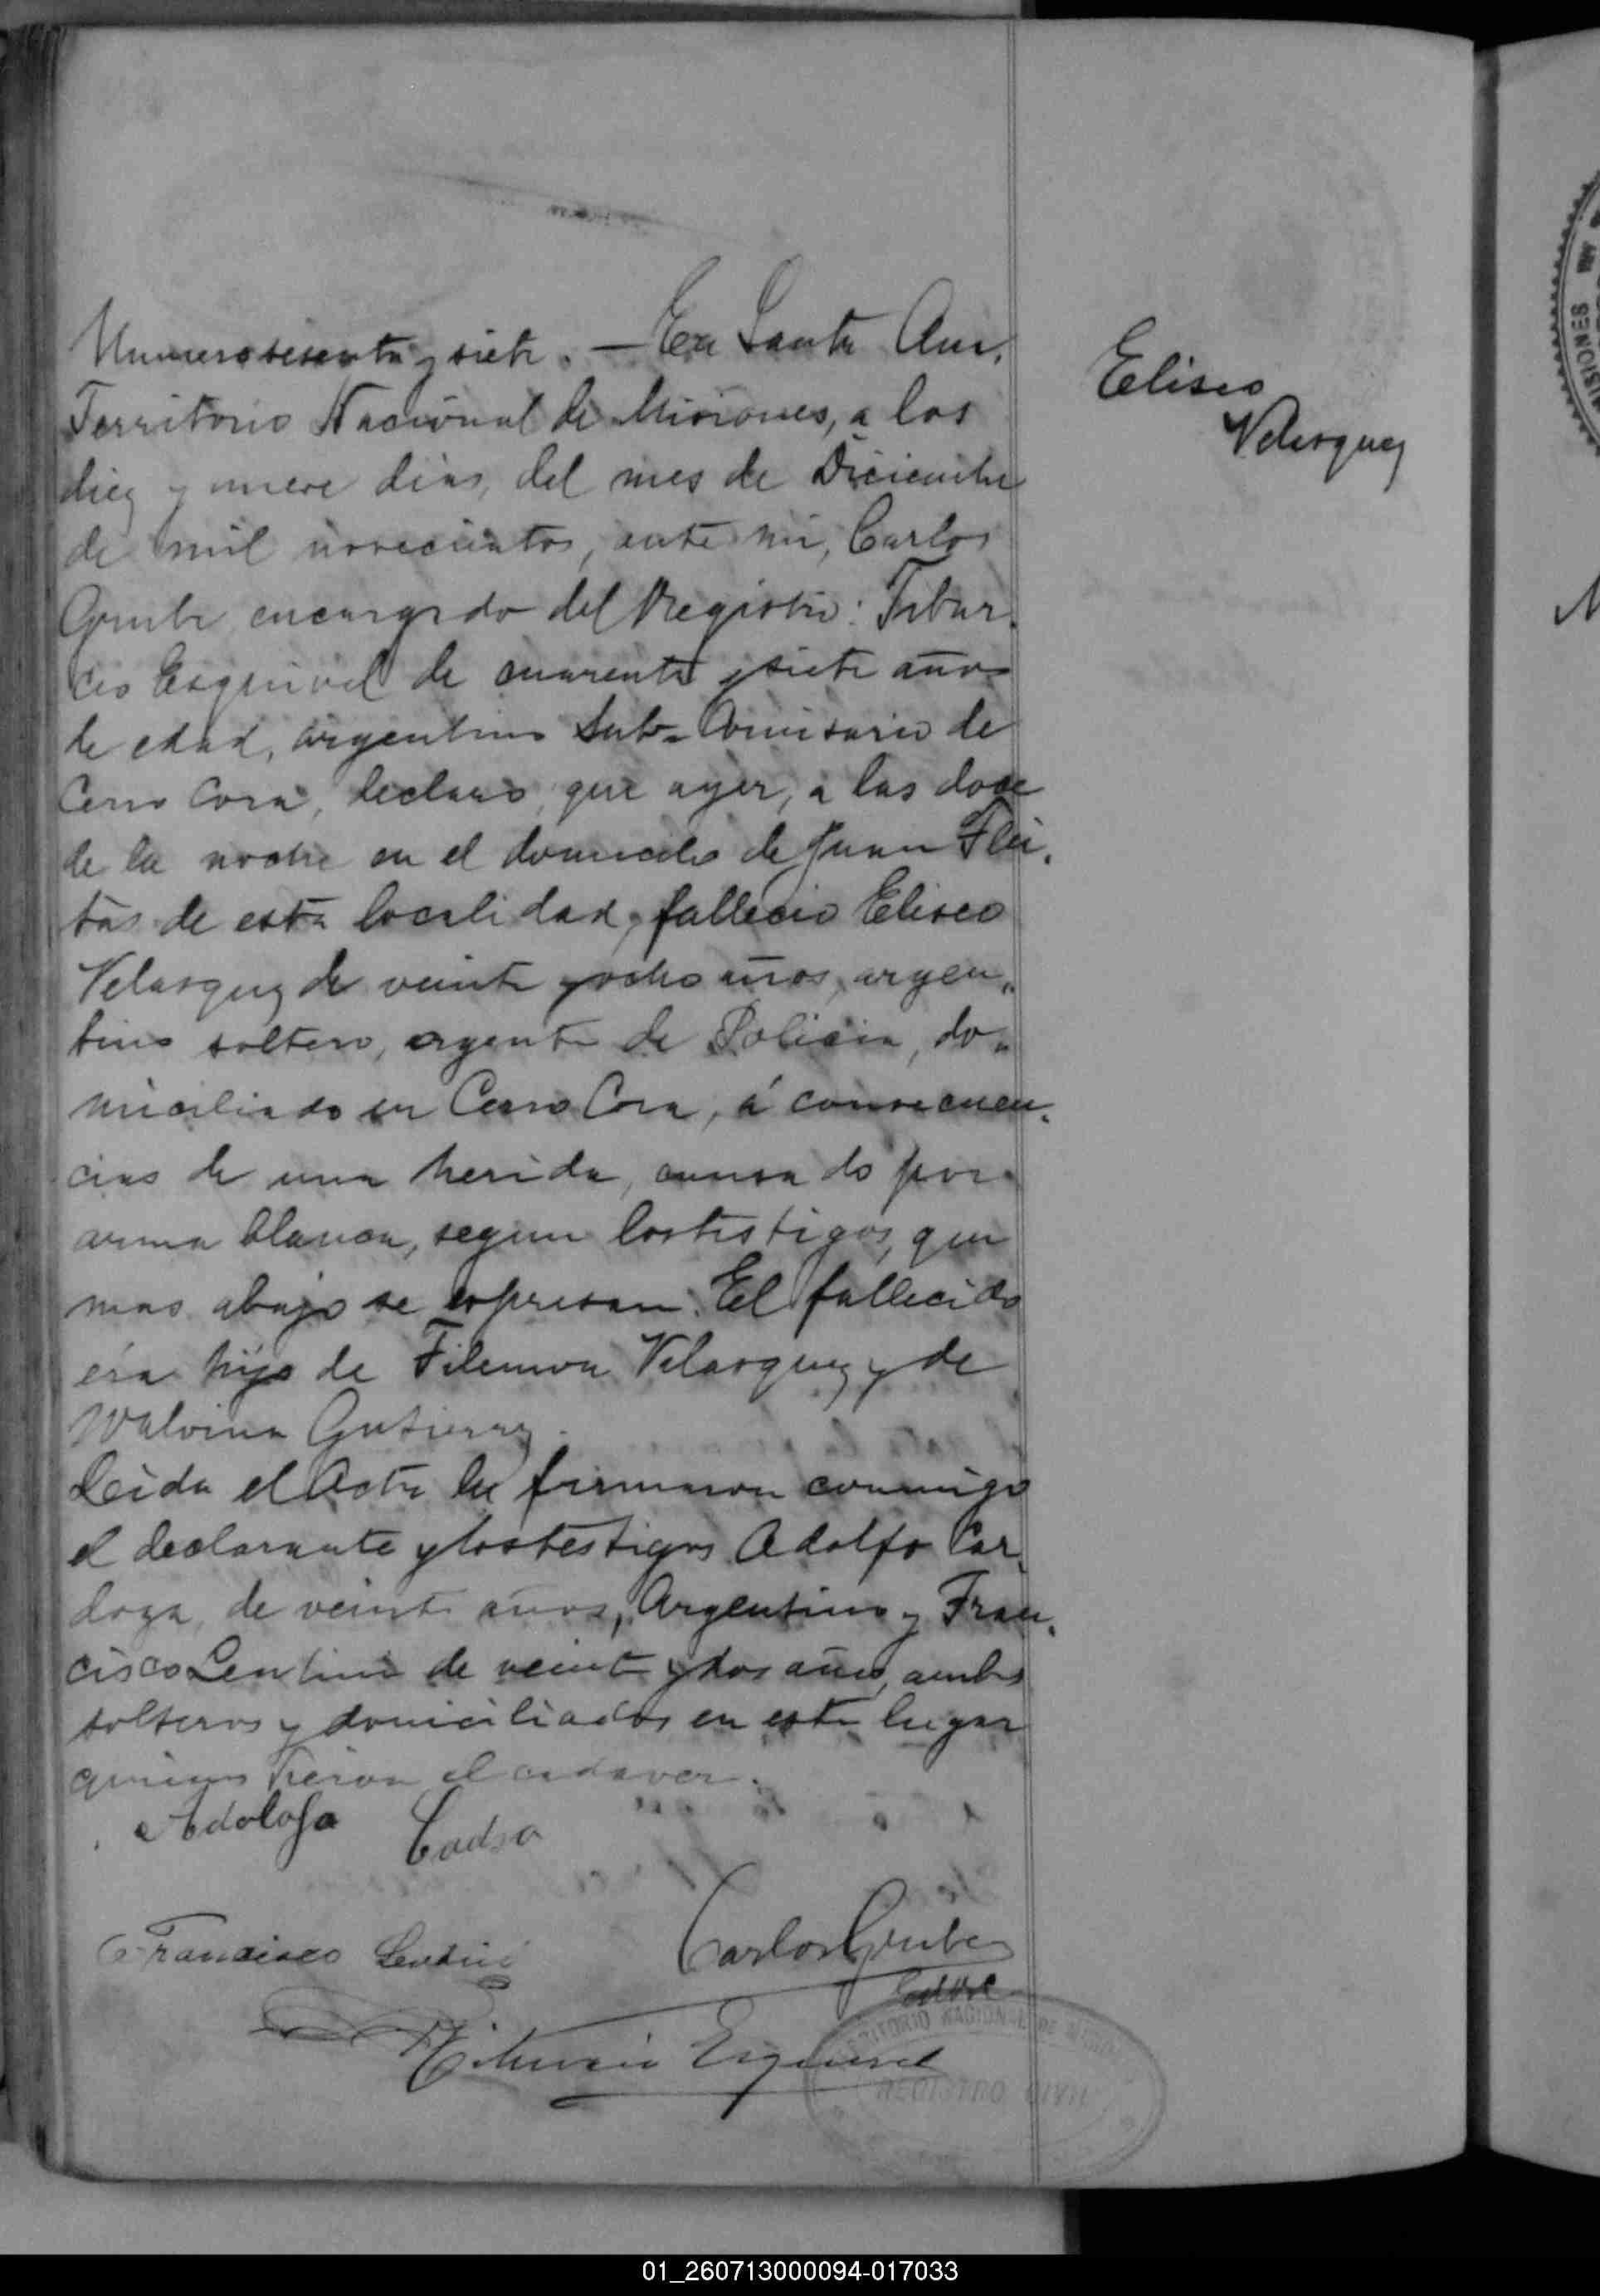 Numero sesenta y siete. — En Santa Ana,
Territorio Nacional de Misiones, a los
diez y nueve dias, del mes de Diciembre
de mil novecientos, ante mi, Carlos
Grube encargado del Registro: Tibur-
cio Esquivel de cuarenta y siete años
de edad, argentino Sub-Comisario de
Cerro Cora, declaro, que ayer, a las doce
de la noche en el domicilio de Juan Flei-
tas de esta localidad, fallecio Eliseo
Velasquez de veinte y ocho años, argen-
tino soltero, agente de Policia, do-
miciliado en Cerro Cora, á consecuen-
cias de una herida, causado por
arma blanca, segun los testigos, que
mas abajo se espresan. El fallecido
era hijo de Filemon Velasquez y de
Walvina Gutierrez.
Leida el Acta la firmaron conmigo
el declarante y los testigos Adolfo Car-
doza, de veinte años, Argentino y Fran-
cisco Lentini de veinte y dos años, ambos
solteros y domiciliados en este lugar
quienes vieron el cadaver.
Adolofo Codso
Francisco Lentini
Carlos Grube
Tiburcio Esquivel
TERRITORIO NACIONAL DE MISIONES
REGISTRO CIVIL
Eliseo
Velasquez
MISIONES
01_260713000094-017033